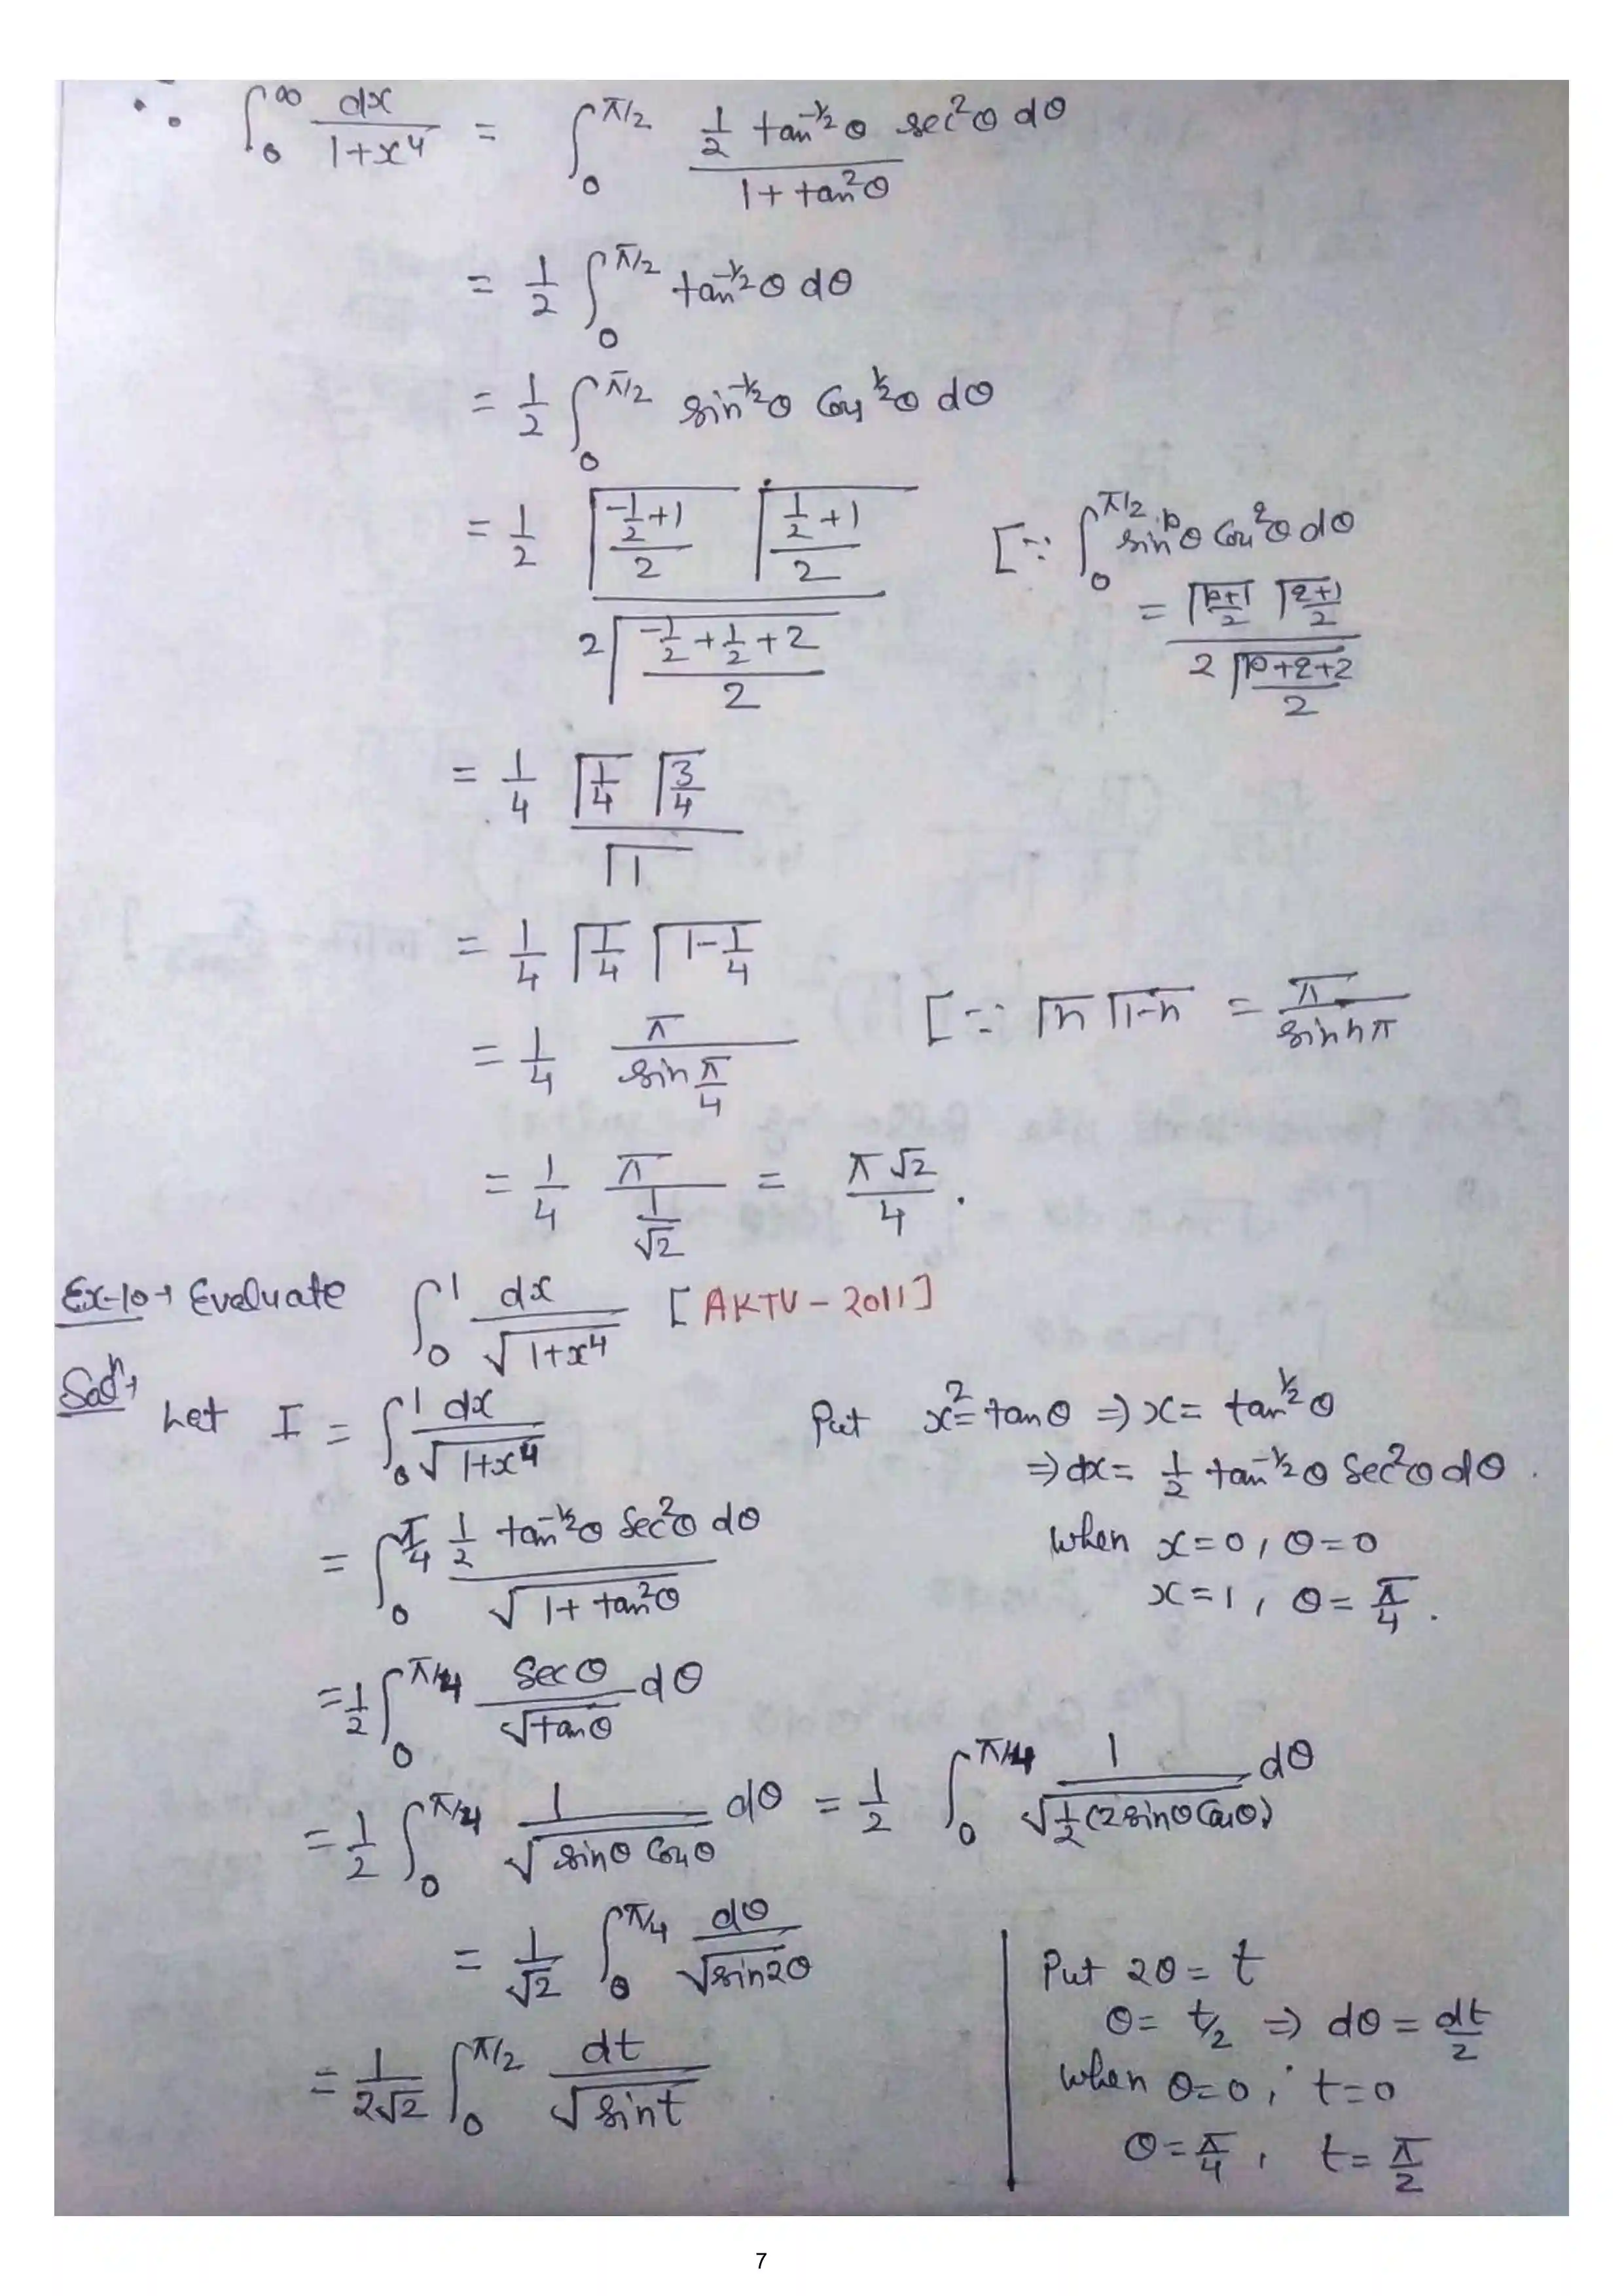 ∴ ∫₀^∞ dx/(1+x⁴) = ∫₀^{π/2} (½ tan^{-1/2}θ sec²θ dθ)/(1+tan²θ)
= 1/2 ∫₀^{π/2} tan^{-1/2}θ dθ
= 1/2 ∫₀^{π/2} sin^{-1/2}θ cos^{1/2}θ dθ
= 1/2 (Γ((-1/2+1)/2) Γ((1/2+1)/2))/(2Γ((-1/2+1/2+2)/2)) [∵ ∫₀^{π/2} sin^pθ cos^qθ dθ
= (Γ((p+1)/2) Γ((q+1)/2))/(2Γ((p+q+2)/2))
= 1/4 (Γ(1/4) Γ(3/4))/Γ1
= 1/4 Γ(1/4) Γ(1-1/4)
= 1/4 π/(sin π/4) [∵ Γn Γ(1-n) = π/(sin nπ)
= 1/4 π/(1/√2) = π√2/4 .
Ex-10→ Evaluate ∫₀¹ dx/√(1+x⁴) [AKTU - 2011]
Solⁿ→
Let I = ∫₀¹ dx/√(1+x⁴) Put x² = tanθ ⇒ x = tan^{1/2}θ
⇒ dx = 1/2 tan^{-1/2}θ sec²θ dθ .
= ∫₀^{π/4} (1/2 tan^{-1/2}θ sec²θ dθ)/√(1+tan²θ) When x=0, θ=0
x=1, θ=π/4 .
= 1/2 ∫₀^{π/4} secθ/√tanθ dθ
= 1/2 ∫₀^{π/4} 1/√(sinθ cosθ) dθ = 1/2 ∫₀^{π/4} 1/√(1/2(2sinθ cosθ)) dθ
= 1/√2 ∫₀^{π/4} dθ/√sin2θ
Put 2θ = t
θ = t/2 ⇒ dθ = dt/2
= 1/(2√2) ∫₀^{π/2} dt/√sint
When θ=0, t=0
θ=π/4, t=π/2
7